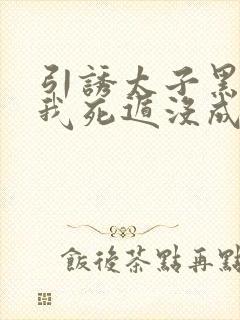 引誘太子黑
我死遁沒成
飯後茶點再點